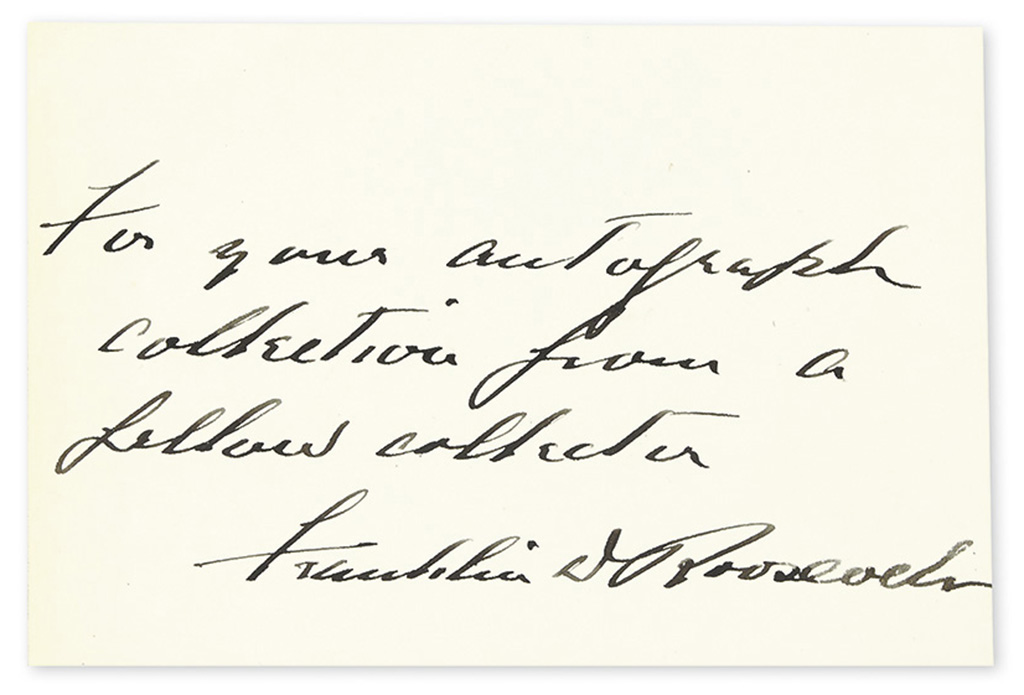 For your autograph
collection from a
fellow collector
Franklin D Roosevelt